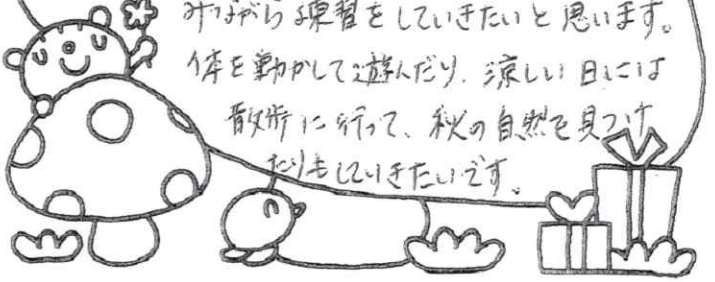 みながら練習をしていきたいと思います。
体を動かして遊んだり、涼しい日には
散歩に行って、秋の自然を見つけ
たりもしていきたいです。